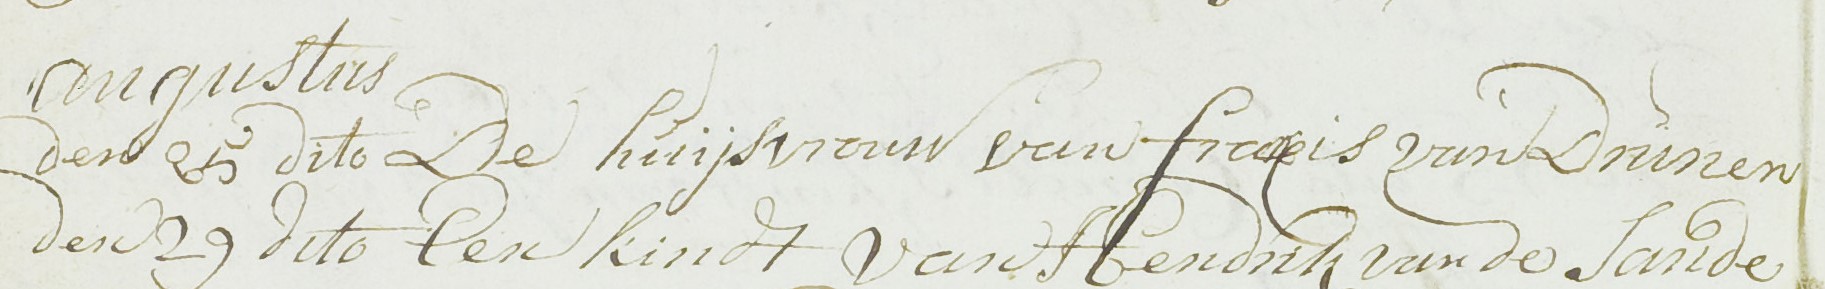 augustus
den 25 dito De huijsvrouw van francis van Drunen
den 29 dito Een kindt van Hendrik van de Sande